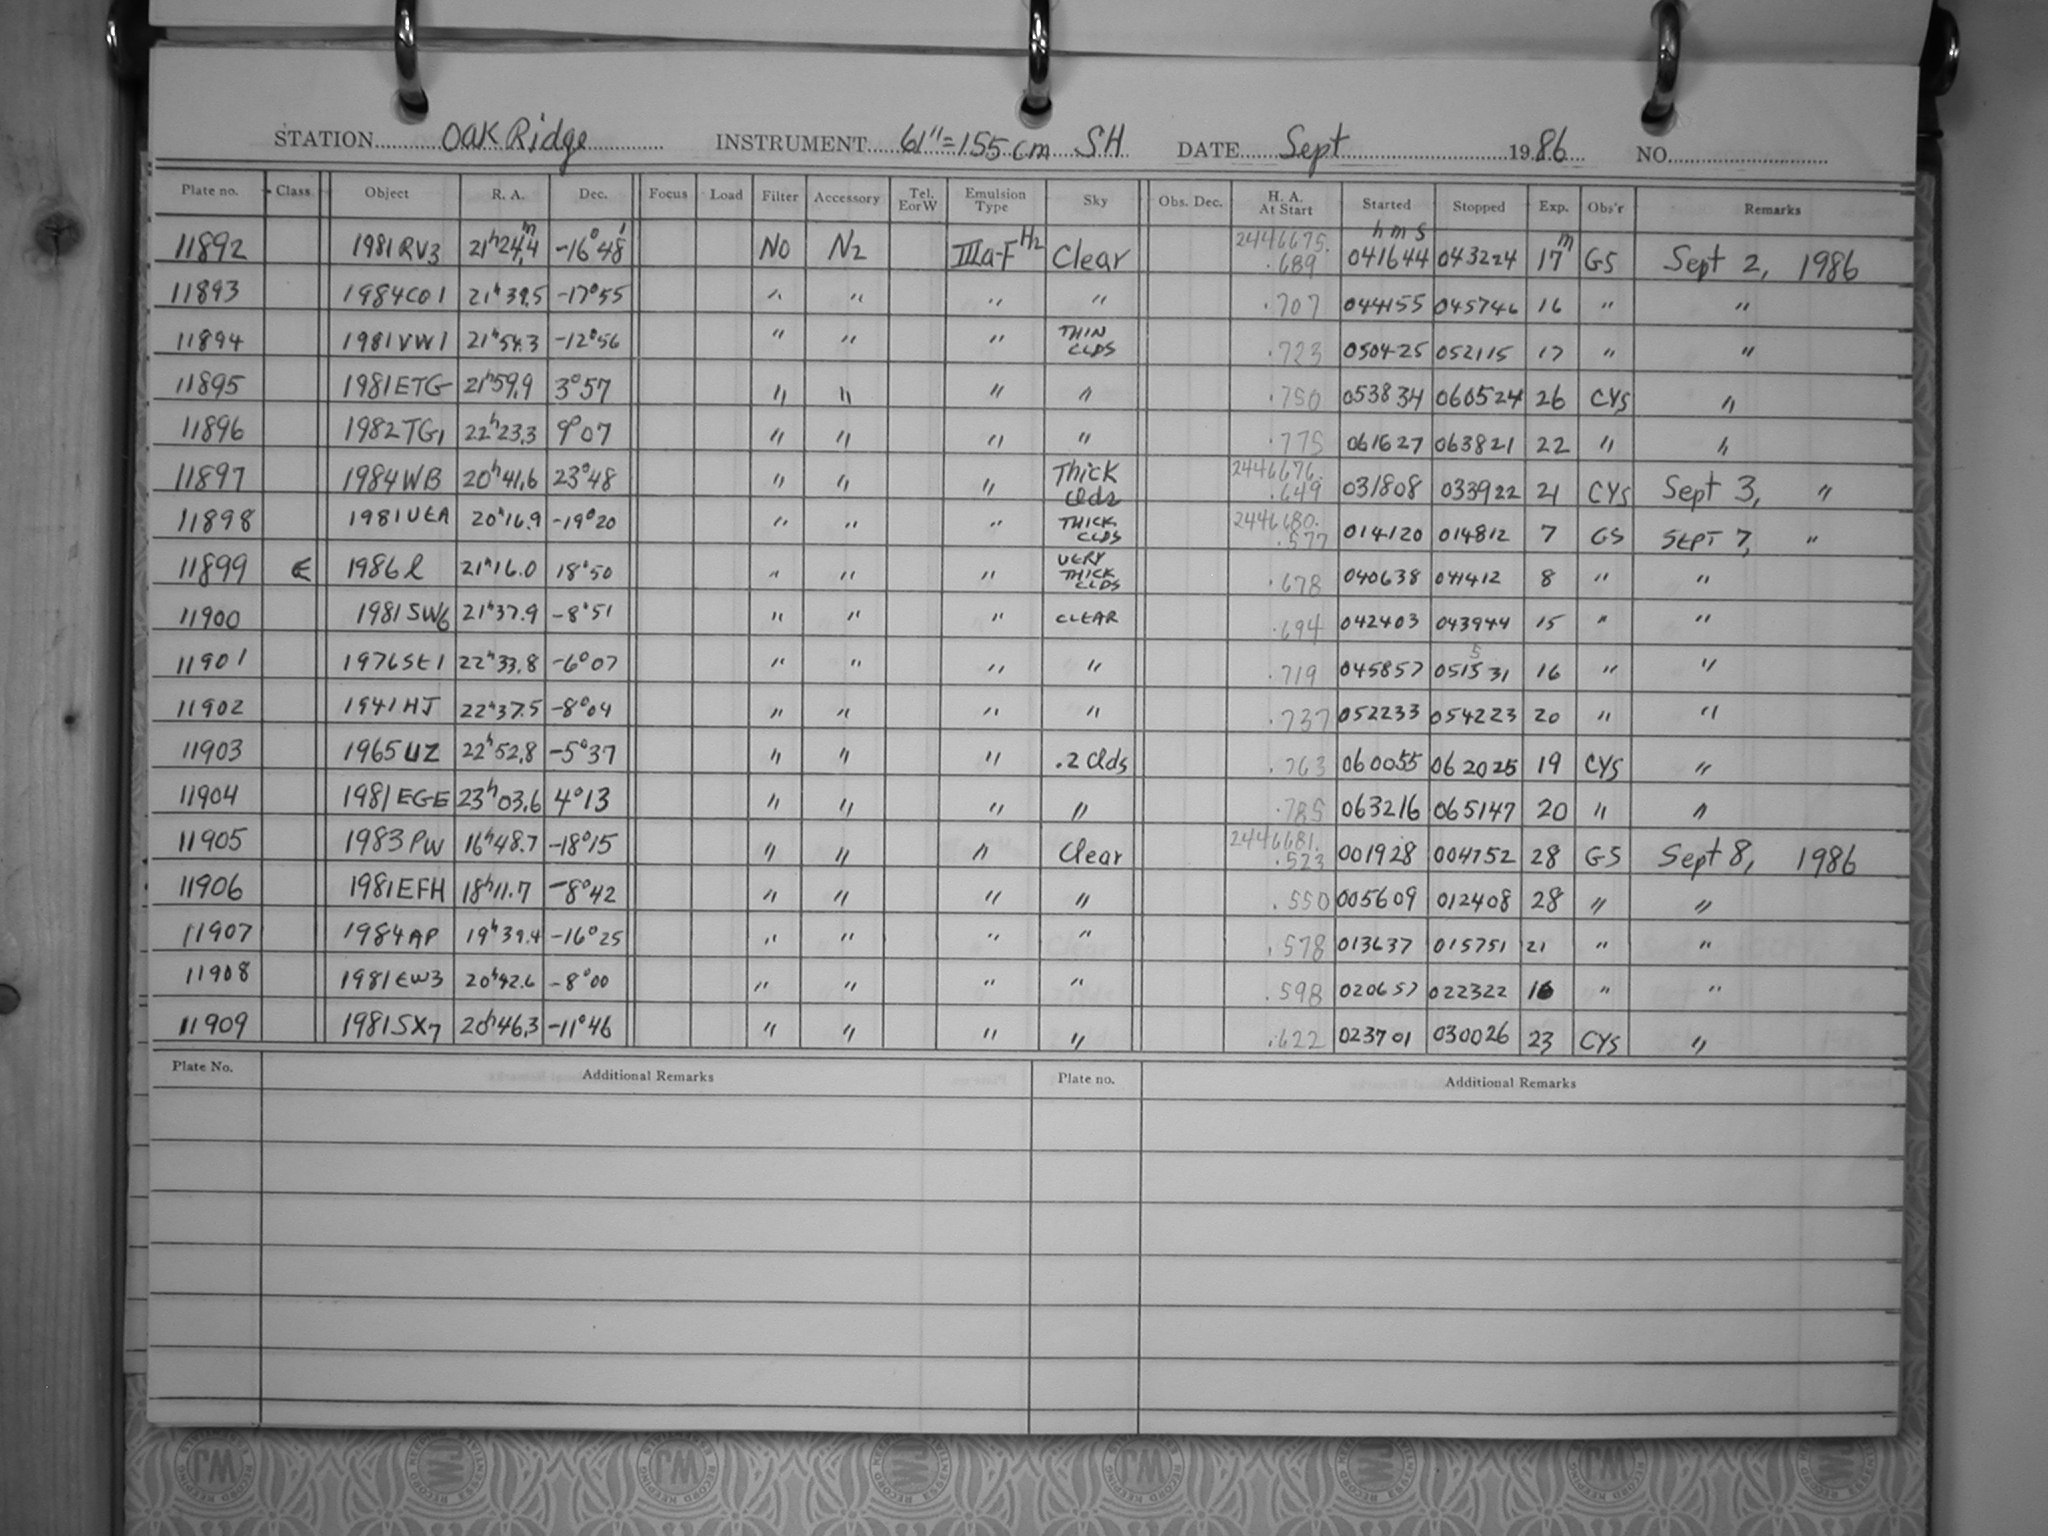 STATION Oak Ridge INSTRUMENT 61"=155 cm SH DATE Sept 1986 NO.
Plate no. Class Object R. A. Dec. Focus Load Filter Accessory Tel. EorW Emulsion Type Sky Obs. Dec. H. A. At Start Started Stopped Exp. Obs'r Remarks
11892 1981RV3 21ʰ24.ᵐ4 -16°48' NO N2 IIIa-F H2 Clear 2446675. .689 ʰ ᵐ ˢ 041644 043224 17ᵐ GS Sept 2, 1986
11893 1984CO1 21ʰ39.5 -17°55 " " " " .707 044155 045746 16 " "
11894 1981VW1 21ʰ54.3 -12°56 " " " THIN CLDS .723 050425 052115 17 " "
11895 1981ETG 21ʰ59.9 3°57 " " " " .750 053834 060524 26 CYS "
11896 1982TG1 22ʰ23.3 9°07 " " " " .775 061627 063821 22 " "
11897 1984WB 20ʰ41.6 23°48 " " " Thick Clds 2446676. .649 031808 033922 21 CYS Sept 3, "
11898 1981UEA 20ʰ16.9 -19°20 " " " THICK CLDS 2446680. .577 014120 014812 7 GS SEPT 7, "
11899 E 1986l 21ʰ16.0 18°50 " " " VERY THICK CLDS .678 040638 041412 8 " "
11900 1981SW6 21ʰ37.9 -8°51 " " " CLEAR .694 042403 043944 15 " "
11901 1976SE1 22ʰ33.8 -6°07 " " " " .719 045857 051531 5 16 " "
11902 1941HJ 22ʰ37.5 -8°04 " " " " .737 052233 054223 20 " "
11903 1965UZ 22ʰ52.8 -5°37 " " " .2 Clds .763 060055 062025 19 CYS "
11904 1981EGE 23ʰ03.6 4°13 " " " " .785 063216 065147 20 " "
11905 1983PW 16ʰ48.7 -18°15 " " " Clear 2446681. .523 001928 004752 28 GS Sept 8, 1986
11906 1981EFH 18ʰ11.7 -8°42 " " " " .550 005609 012408 28 " "
11907 1984AP 19ʰ39.4 -16°25 " " " " .578 013637 015751 21 " "
11908 1981EW3 20ʰ42.6 -8°00 " " " " .598 020657 022322 16 " "
11909 1981SX7 20ʰ46.3 -11°46 " " " " .622 023701 030026 23 CYS "
Plate No. Additional Remarks Plate no. Additional Remarks